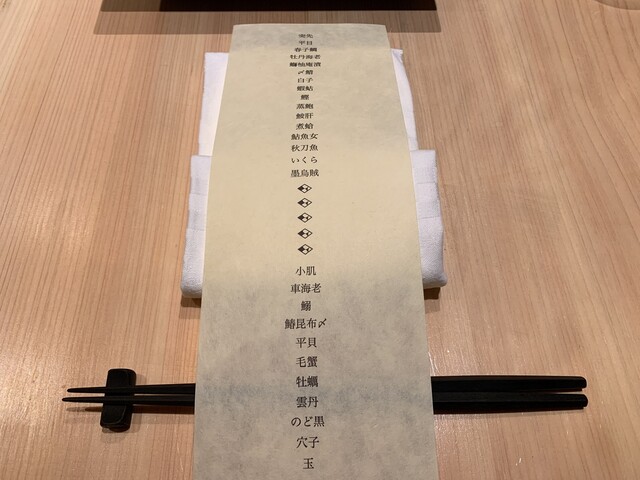 突先
平目
春子鯛
牡丹海老
鰤柚庵漬
〆鯖
白子
蝦蛄
鰹
蒸鮑
鮟肝
煮蛤
鮎魚女
秋刀魚
いくら
墨烏賊
小肌
車海老
鰯
鰆昆布〆
平貝
毛蟹
牡蠣
雲丹
のど黒
穴子
玉